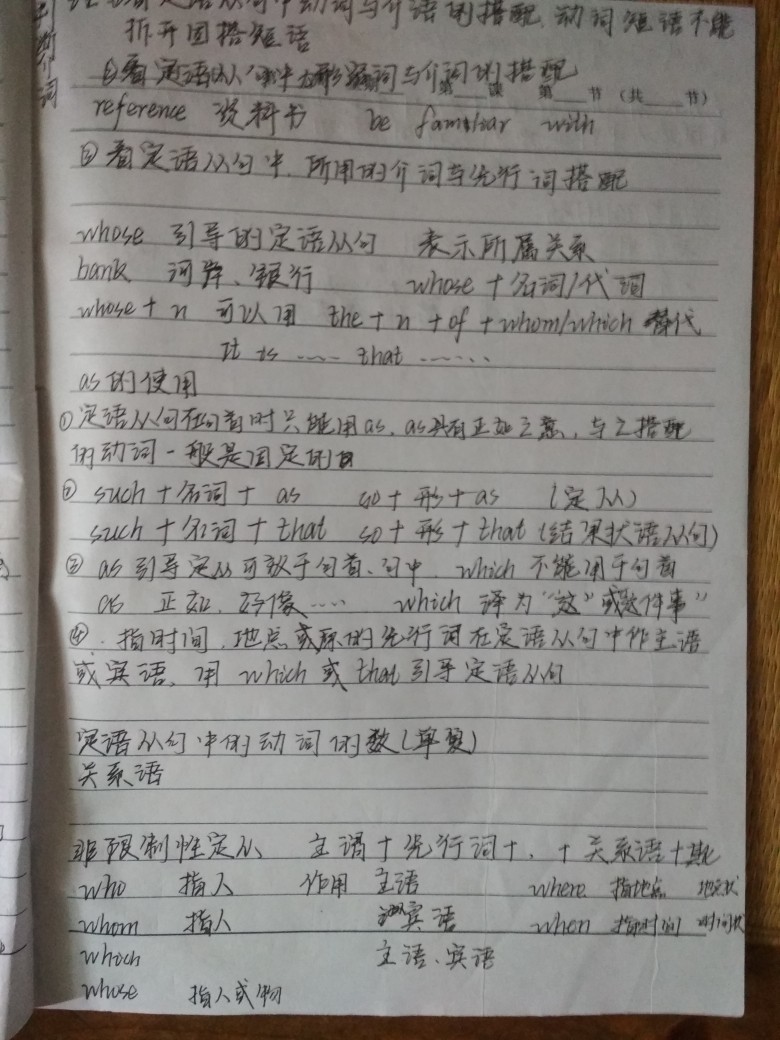 看定语从句中动词与介语的搭配、动词短语不能
拆开固搭短语
介词
①看定语从句中形容词与介词的搭配
第 课 第 节 (共 节)
reference 资料书 be familiar with
②看定语从句中,所用的介词与先行词搭配
whose 引导的定语从句 表示所属关系
bank 河岸、银行 whose + 名词/代词
whose + n 可以用 the + n + of + whom/which 替代
It is …… that ……
as的使用
①定语从句在句首时只能用as, as具有正如之意,与之搭配
的动词一般是固定的
② such + 名词 + as so + 形 + as (定从)
such + 名词 + that so + 形 + that (结果状语从句)
③ as 引导定从可放于句首、句中, which 不能用于句首
as 正如,好像…… which 译为"这"或这件事"
④. 指时间、地点或原的先行词在定语从句中作主语
或宾语、用 which 或 that 引导定语从句
定语从句中的动词的数(单复)
关系语
非限制性定从 主谓 + 先行词 + , + 关系语 + 其
who 指人 作用 主语 where 指地点 地点状
whom 指人 宾语 when 指时间 时间状
whoch 主语、宾语
whose 指人或物